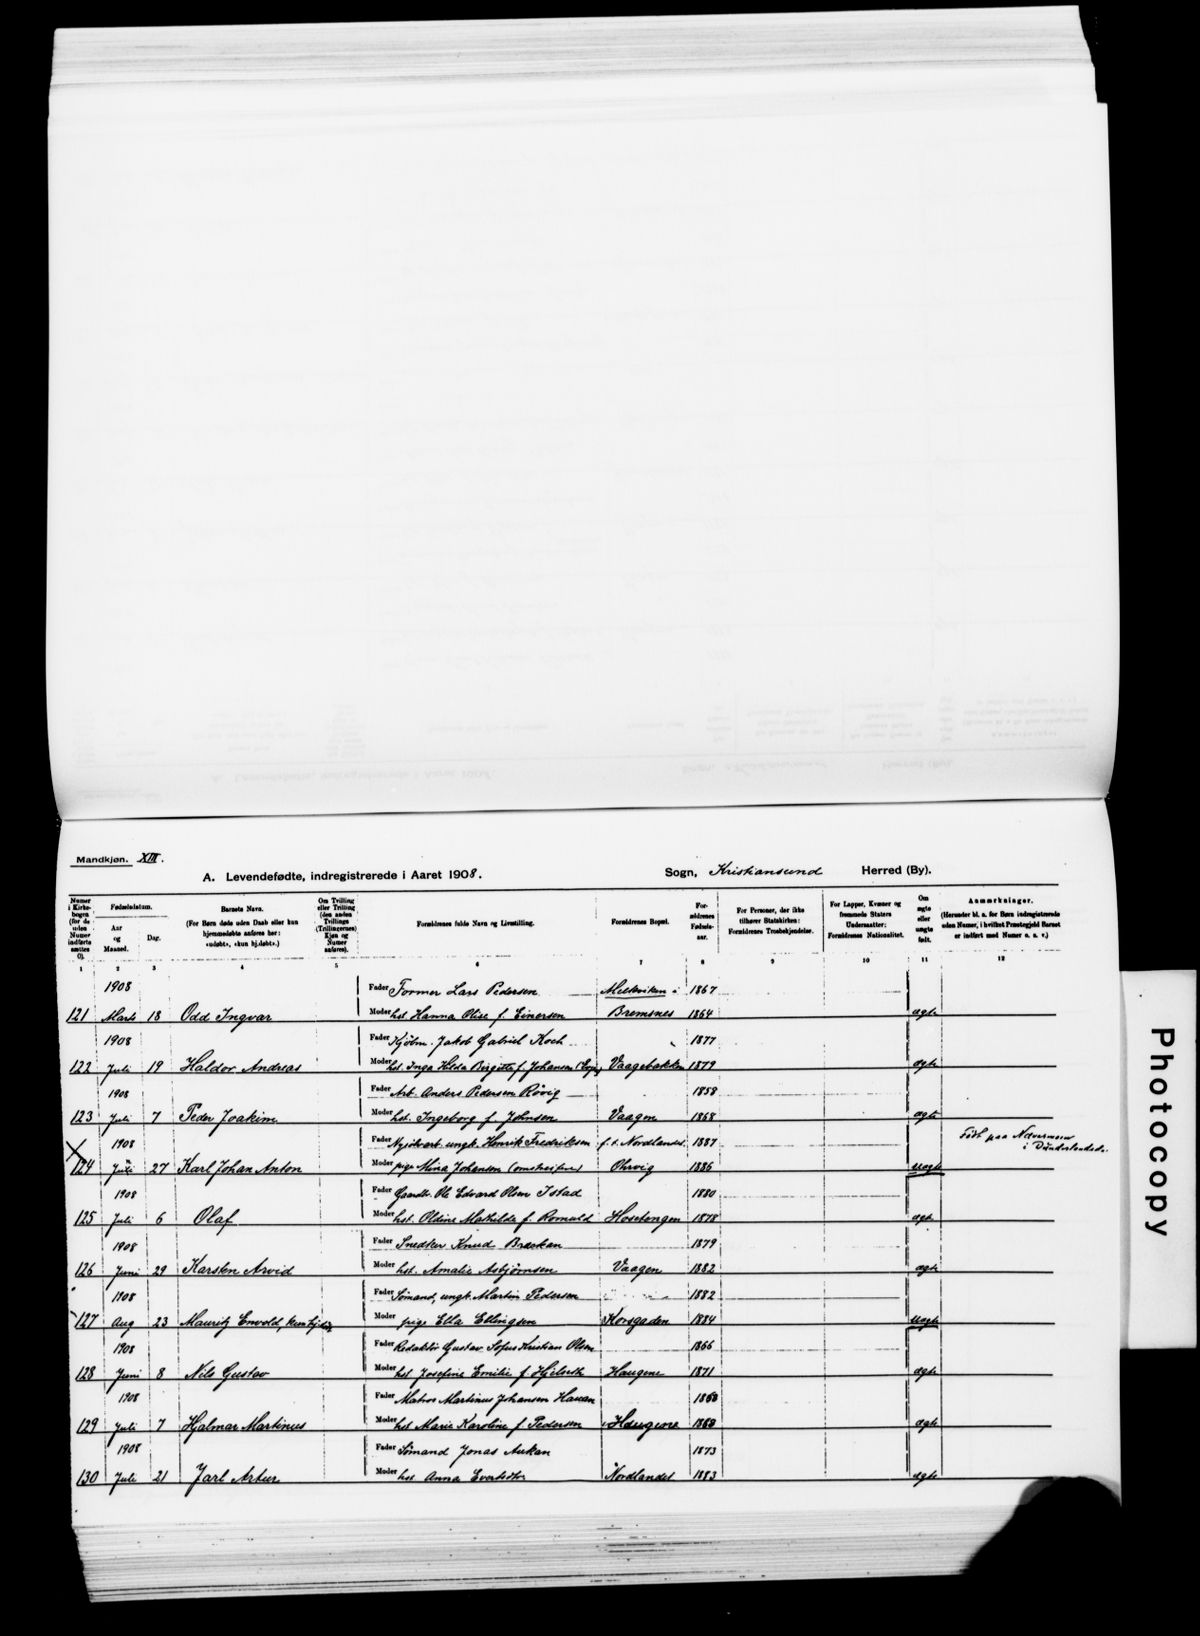 Mandkjøn. XIII.
A. Levendefødte, indregistrerede i Aaret 1908. Sogn, Kristiansund Herred (By).
Numer i Kirkebogen (for de uden Numer indførte sættes 0). Fødselsdatum. Aar og Maaned. Dag. Barnets Navn. (For Børn døde uden Daab eller kun hjemmedøbte anføres her: «udøbt», «kun hj.døbt».) Om Tvilling eller Trilling (den anden Tvillings (Trillingernes) Kjøn og Numer anføres). Forældrenes fulde Navn og Livsstilling. Forældrenes Bopæl. Forældrenes Fødselsaar. For Personer, der ikke tilhører Statskirken: Forældrenes Trosbekjendelse. For Lapper, Kvæner og fremmede Staters Undersaatter: Forældrenes Nationalitet. Om ægte eller uægte født. Anmærkninger. (Herunder bl. a. for Børn indregistrerede uden Numer, i hvilket Præstegjeld Barnet er indført med Numer o. s. v.)
1 2 3 4 5 6 7 8 9 10 11 12
1908 Fader Former Lars Pedersen Meleviken i 1867
121 Marts 18 Odd Ingvar Moder hst. Hanna Olise f. Einersen Bremsnes 1864 ægte
1908 Fader Kjøbm. Jakob Gabriel Koch 1877
122 Juli 19 Haldor Andreas Moder hst. Inga Hilda Birgitte f. Johansen Vaagebakken 1879 ægte
1908 Fader Arb. Anders Pedersen Røvig 1858
123 Juli 7 Peder Joakim Moder hst. Ingeborg f. Johnsen Vaagen 1868 ægte
1908 Fader ungk. Henrik Fredriksen f. t. Nordlandet 1887 Født paa Nævermoen
124 Juli 27 Karl Johan Anton Moder pige Mina Johansen Ohrvig 1886 uægte i Dunderlandsd.
1908 Fader Gaardb. Ole Edvard Olsen Istad 1880
125 Juli 6 Olaf Moder hst. Oldine Mathilde f. Romuld 1878 ægte
1908 Fader Snedker Knud Brækan 1879
126 Juni 29 Karsten Arvid Moder hst. Amalie Asbjørnsen Vaagen 1882 ægte
1908 Fader Sømand, ungk. Martin Pedersen 1882
127 Aug 23 Mauritz Envold, Moder pige Ella Ellingsen Korsgaden 1884 uægte
1908 Fader Redaktør Gustav Sofus Kristian Olsen 1866
128 Juni 8 Nils Gustav Moder hst. Josefine Emilie f. Hjelseth Haugene 1871 ægte
1908 Fader Matros Martinus Johansen Hauan
129 Juli 7 Hjalmar Martinus Moder hst Marie Karoline f. Pedersen Haugene ægte
1908 Fader Sømand Jonas Aukan 1873
130 Juli 21 Jarl Artur Moder hst. Anna Nordlandet 1883 ægte
Photocopy